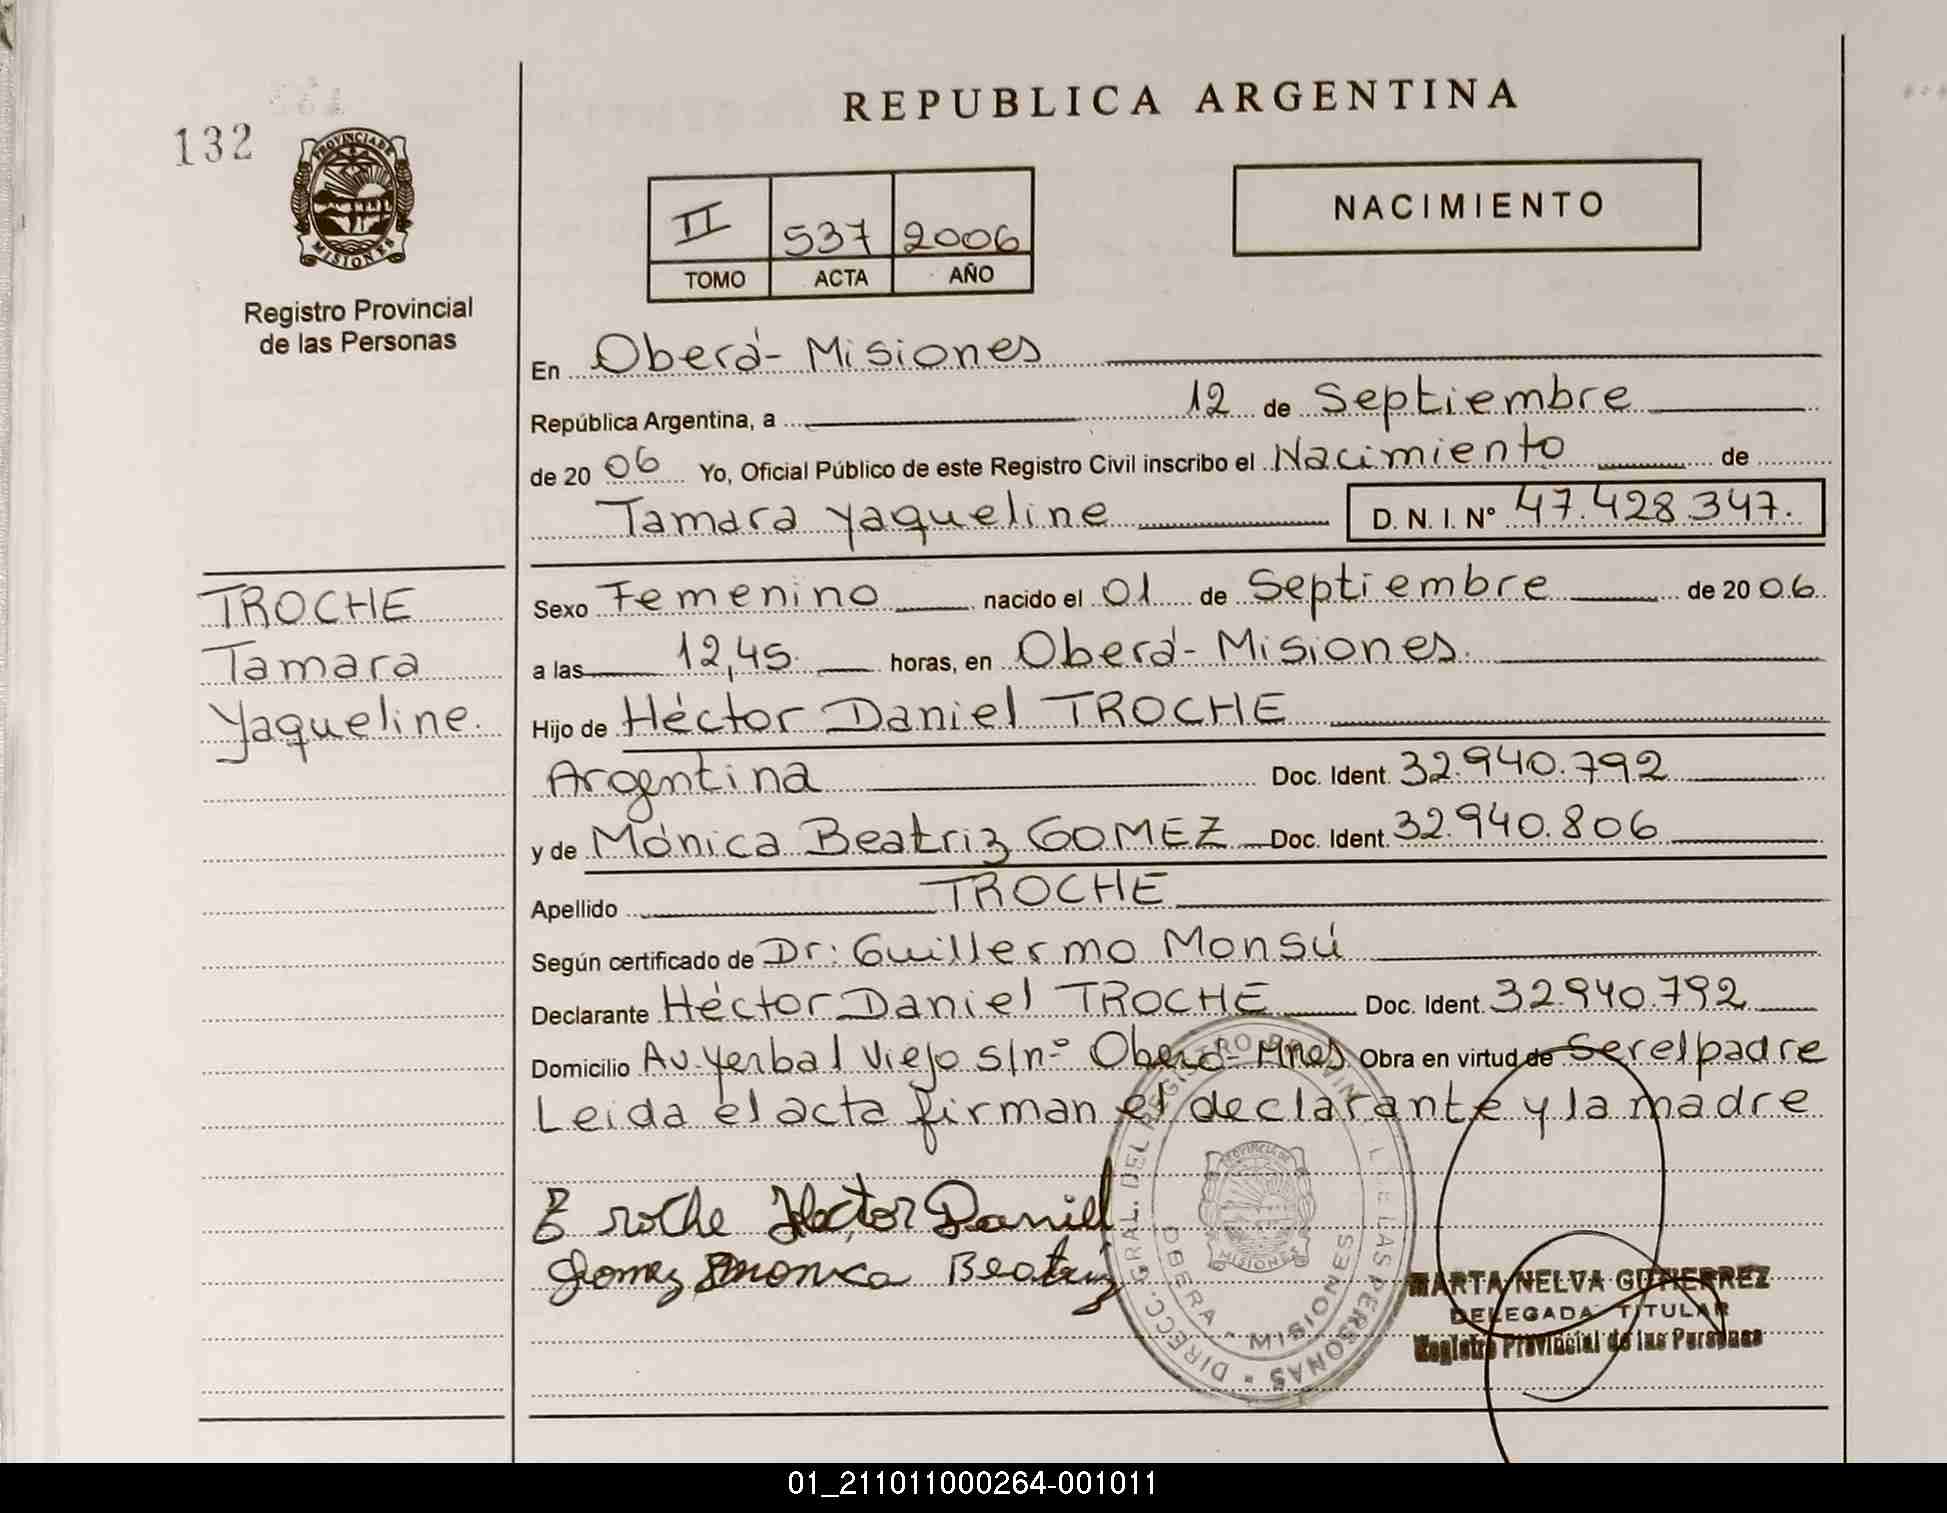 REPUBLICA ARGENTINA
132
PROVINCIA DE
MISIONES
Registro Provincial
de las Personas
II 537 2006
TOMO ACTA AÑO
NACIMIENTO
En Oberá - Misiones
República Argentina, a 12 de Septiembre
de 20 06 Yo, Oficial Público de este Registro Civil inscribo el Nacimiento de
Tamara Yaqueline D. N. I. Nº 47.428.347.
TROCHE
Tamara
Yaqueline.
Sexo Femenino nacido el 01 de Septiembre de 20 06
a las 12,45. horas, en Oberá - Misiones.
Hijo de Héctor Daniel TROCHE
Argentina Doc. Ident. 32.940.792
y de Mónica Beatriz GOMEZ Doc. Ident. 32.940.806
Apellido TROCHE
Según certificado de Dr: Guillermo Monsú
Declarante Héctor Daniel TROCHE Doc. Ident. 32.940.792
Domicilio Av. Yerbal Viejo s/nº Oberá - Mnes Obra en virtud de Ser el padre
Leida el acta firman el declarante y la madre
Troche Hector Daniel
Gomez Monica Beatriz
DIREC. GRAL. DEL REGISTRO PROVINCIAL DE LAS PERSONAS
OBERA - MISIONES
PROVINCIA DE
MISIONES
MARTA NELVA GUTIERREZ
DELEGADA TITULAR
Registro Provincial de las Personas
01_211011000264-001011